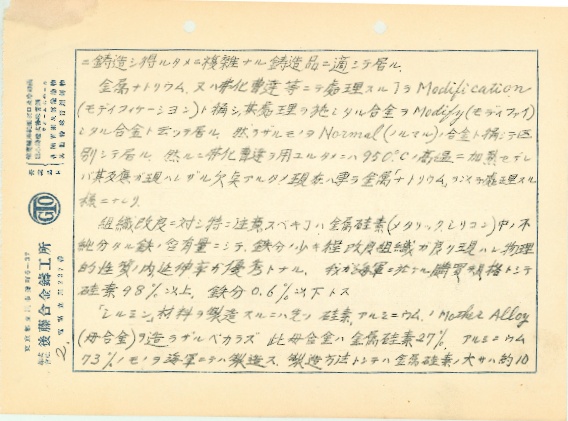 ニ鋳造シ得ルタメニ複雑ナル鋳造品ニ適シテ居ル.
金属ナトリウム、又ハ弗化曹達等ニテ処理スル﹁ヲ Modification
(モディフィケーション)ト稱シ其処理ヲ施シタル合金ヲ Modify (モディファイ)
シタル合金ト云ツテ居ル. 然ラザルモノヲ Normal (ノルマル)合金ト稱シテ区
別シテ居ル. 然ルニ弗化曹達ヲ用ユルタニハ950°Cノ高温ニ加熱セザレ
バ其反應ガ現ハレザル欠点アルタメ現在ハ専ラ金属ナトリウム, ヲ以テ處理スル
様ニナレリ.
組織改良ニ対シ特ニ注意スベキ﹁ハ金属硅素(メタリック,シリコン)中ノ不
純分タル鉄ノ含有量ニシテ、鉄分ノ少キ程改良組織ガ良ク現ハレ物理
的性質ノ内延伸率ガ優秀トナル. 我ガ海軍ニ於ケル購買規格トシテ
硅素98%以上, 鉄分0.6%以下トス
「シルミン」材料ヲ製造スルニハ先ヅ硅素,アルミニウム,ノ Mother Alloy
(母合金)ヲ造ラザルベカラズ 此母合金ハ金属硅素27%, アルミニウム
73%ノモノヲ海軍ニテハ製造ス. 製造方法トシテハ金属硅素ノ大サハ約10
GTO
後藤合金鑄工所
2.